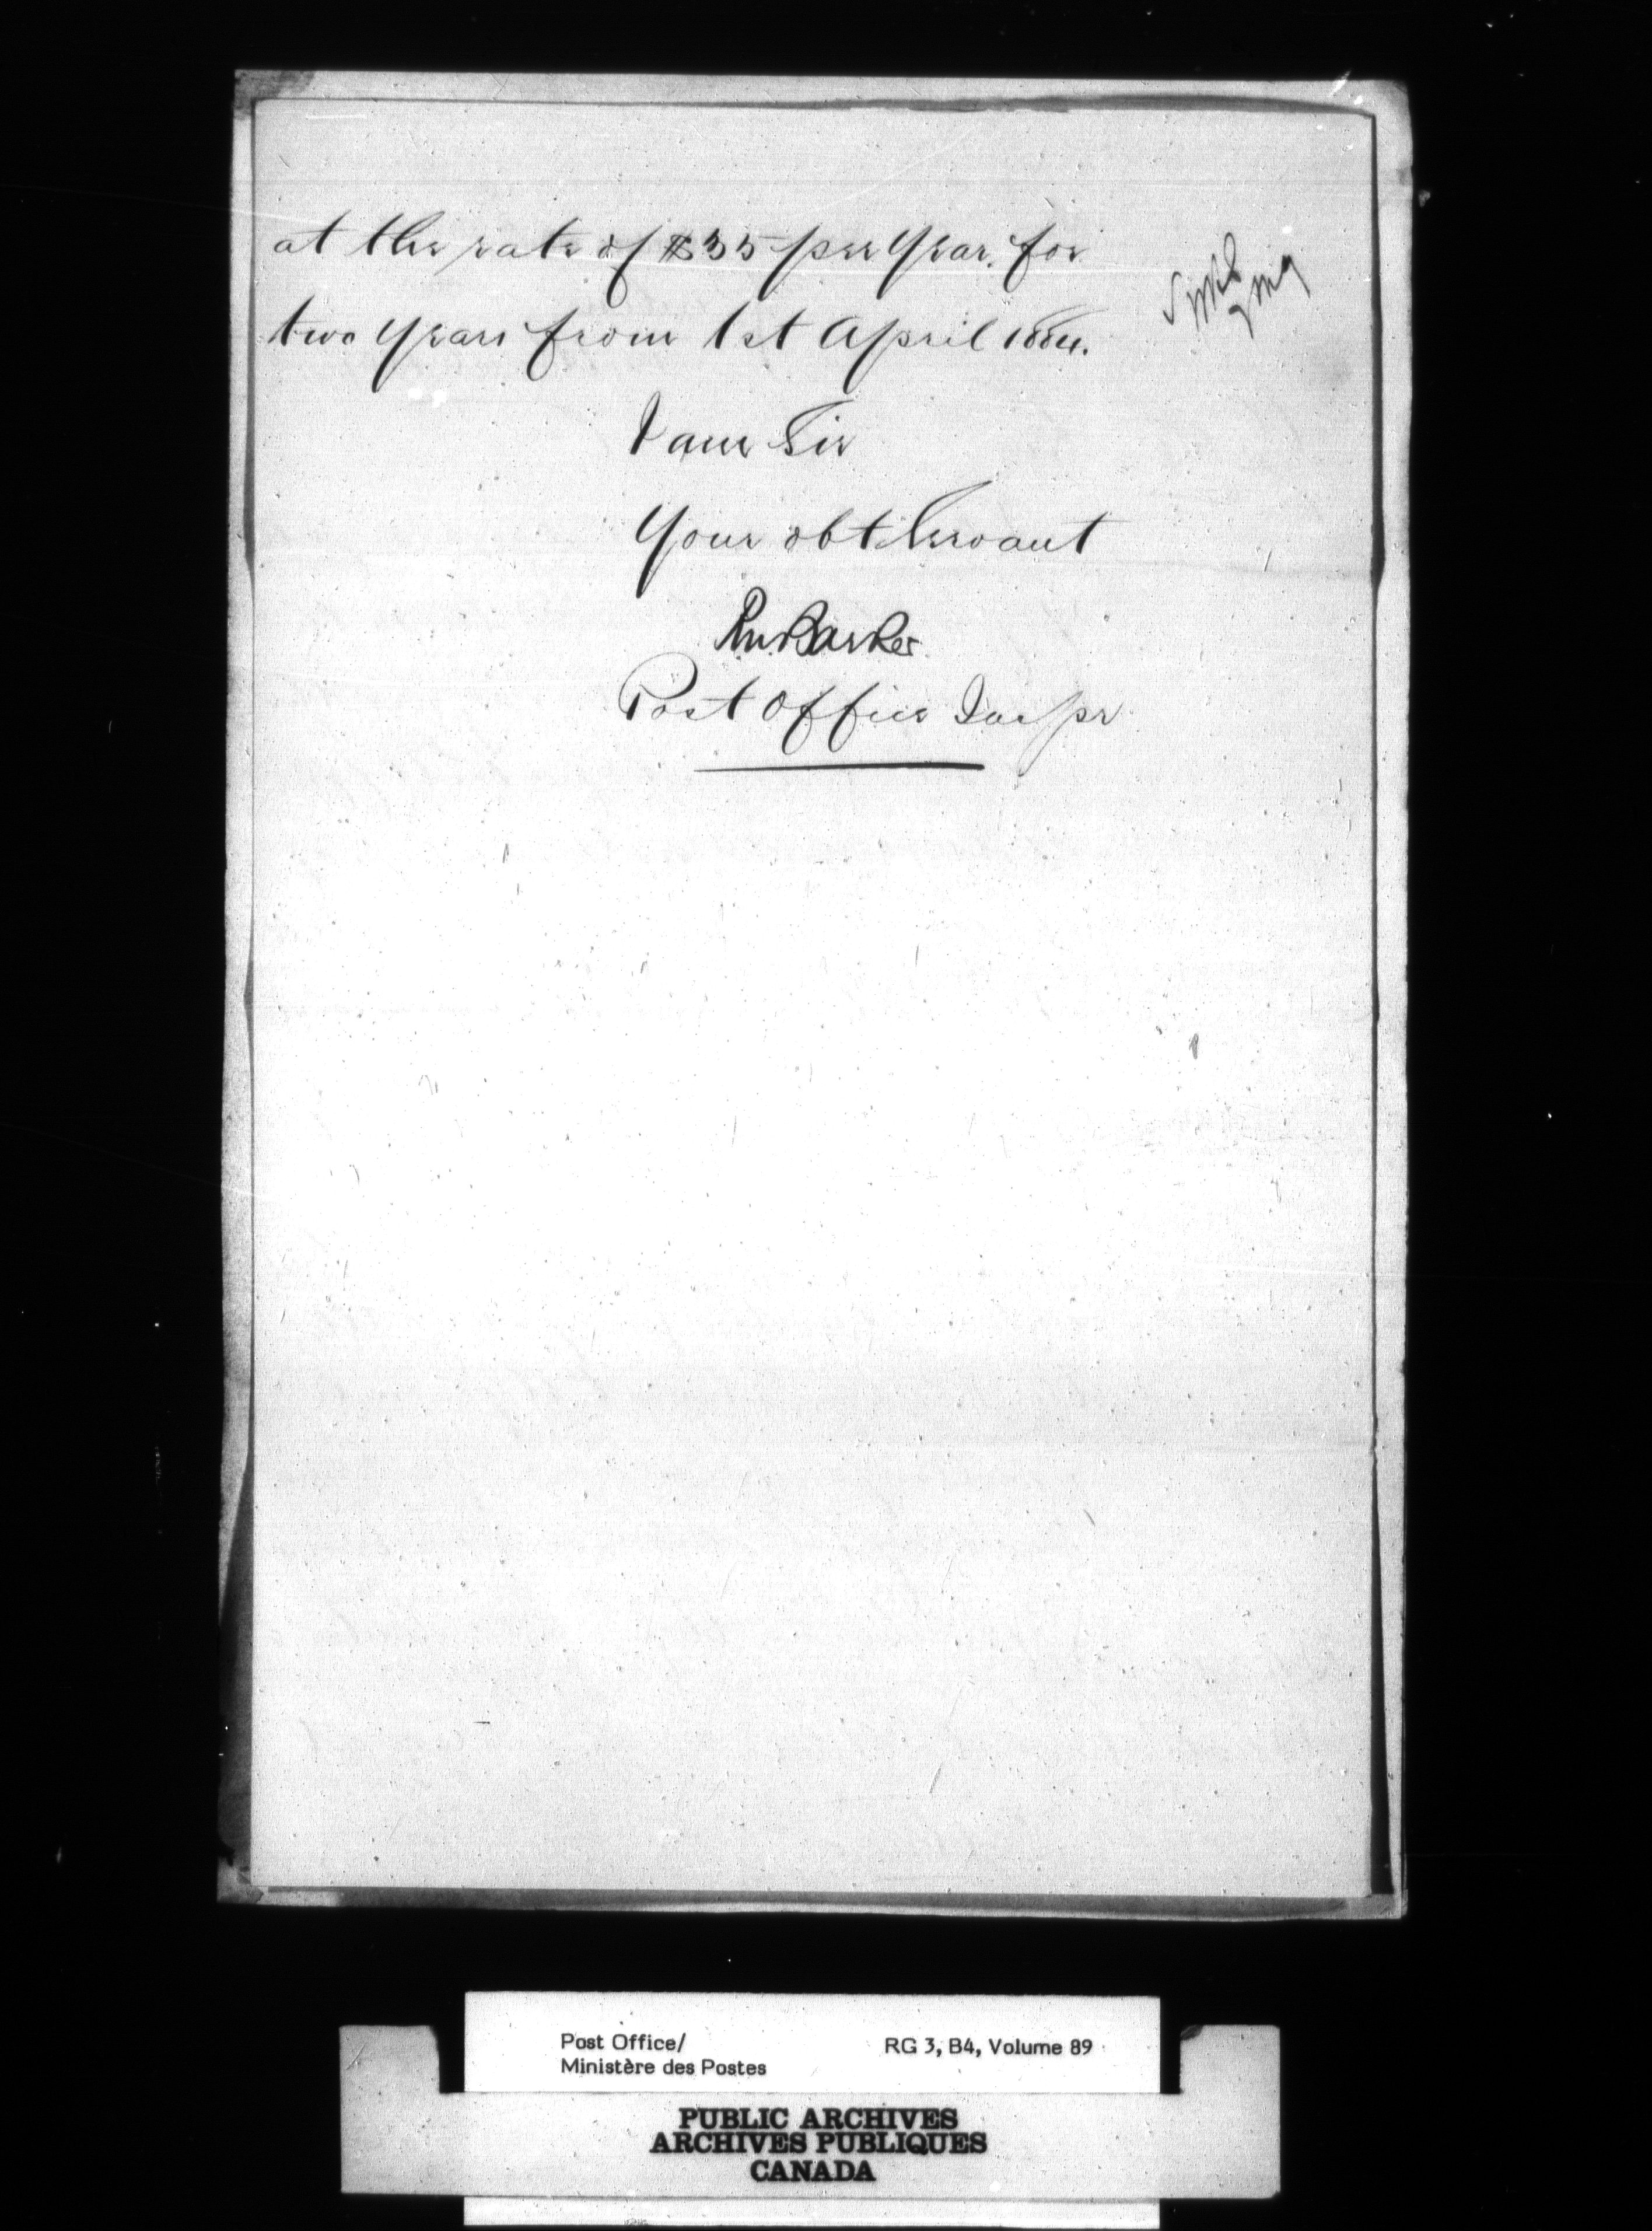 at the rate of $35 per year. for
two years from 1st April 1884.
I am Sir
Your obt Servant
Barker
Post Office Inspr
Post Office/
Ministère des Postes
RG 3, B4, Volume 89
PUBLIC ARCHIVES
ARCHIVES PUBLIQUES
CANADA